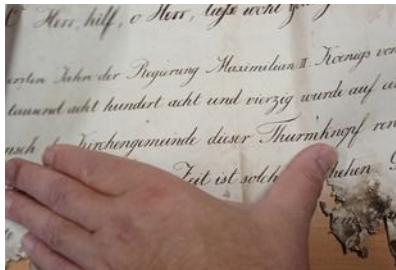 O Herr, hilf, o Herr, laße wohl
ersten Jahr der Regierung Maximilian II. Koenigs von
tausend acht hundert acht und vierzig wurde auf
Kirchengemeinde dieser Thurmknopf ren
Zeit ist solch hehen.